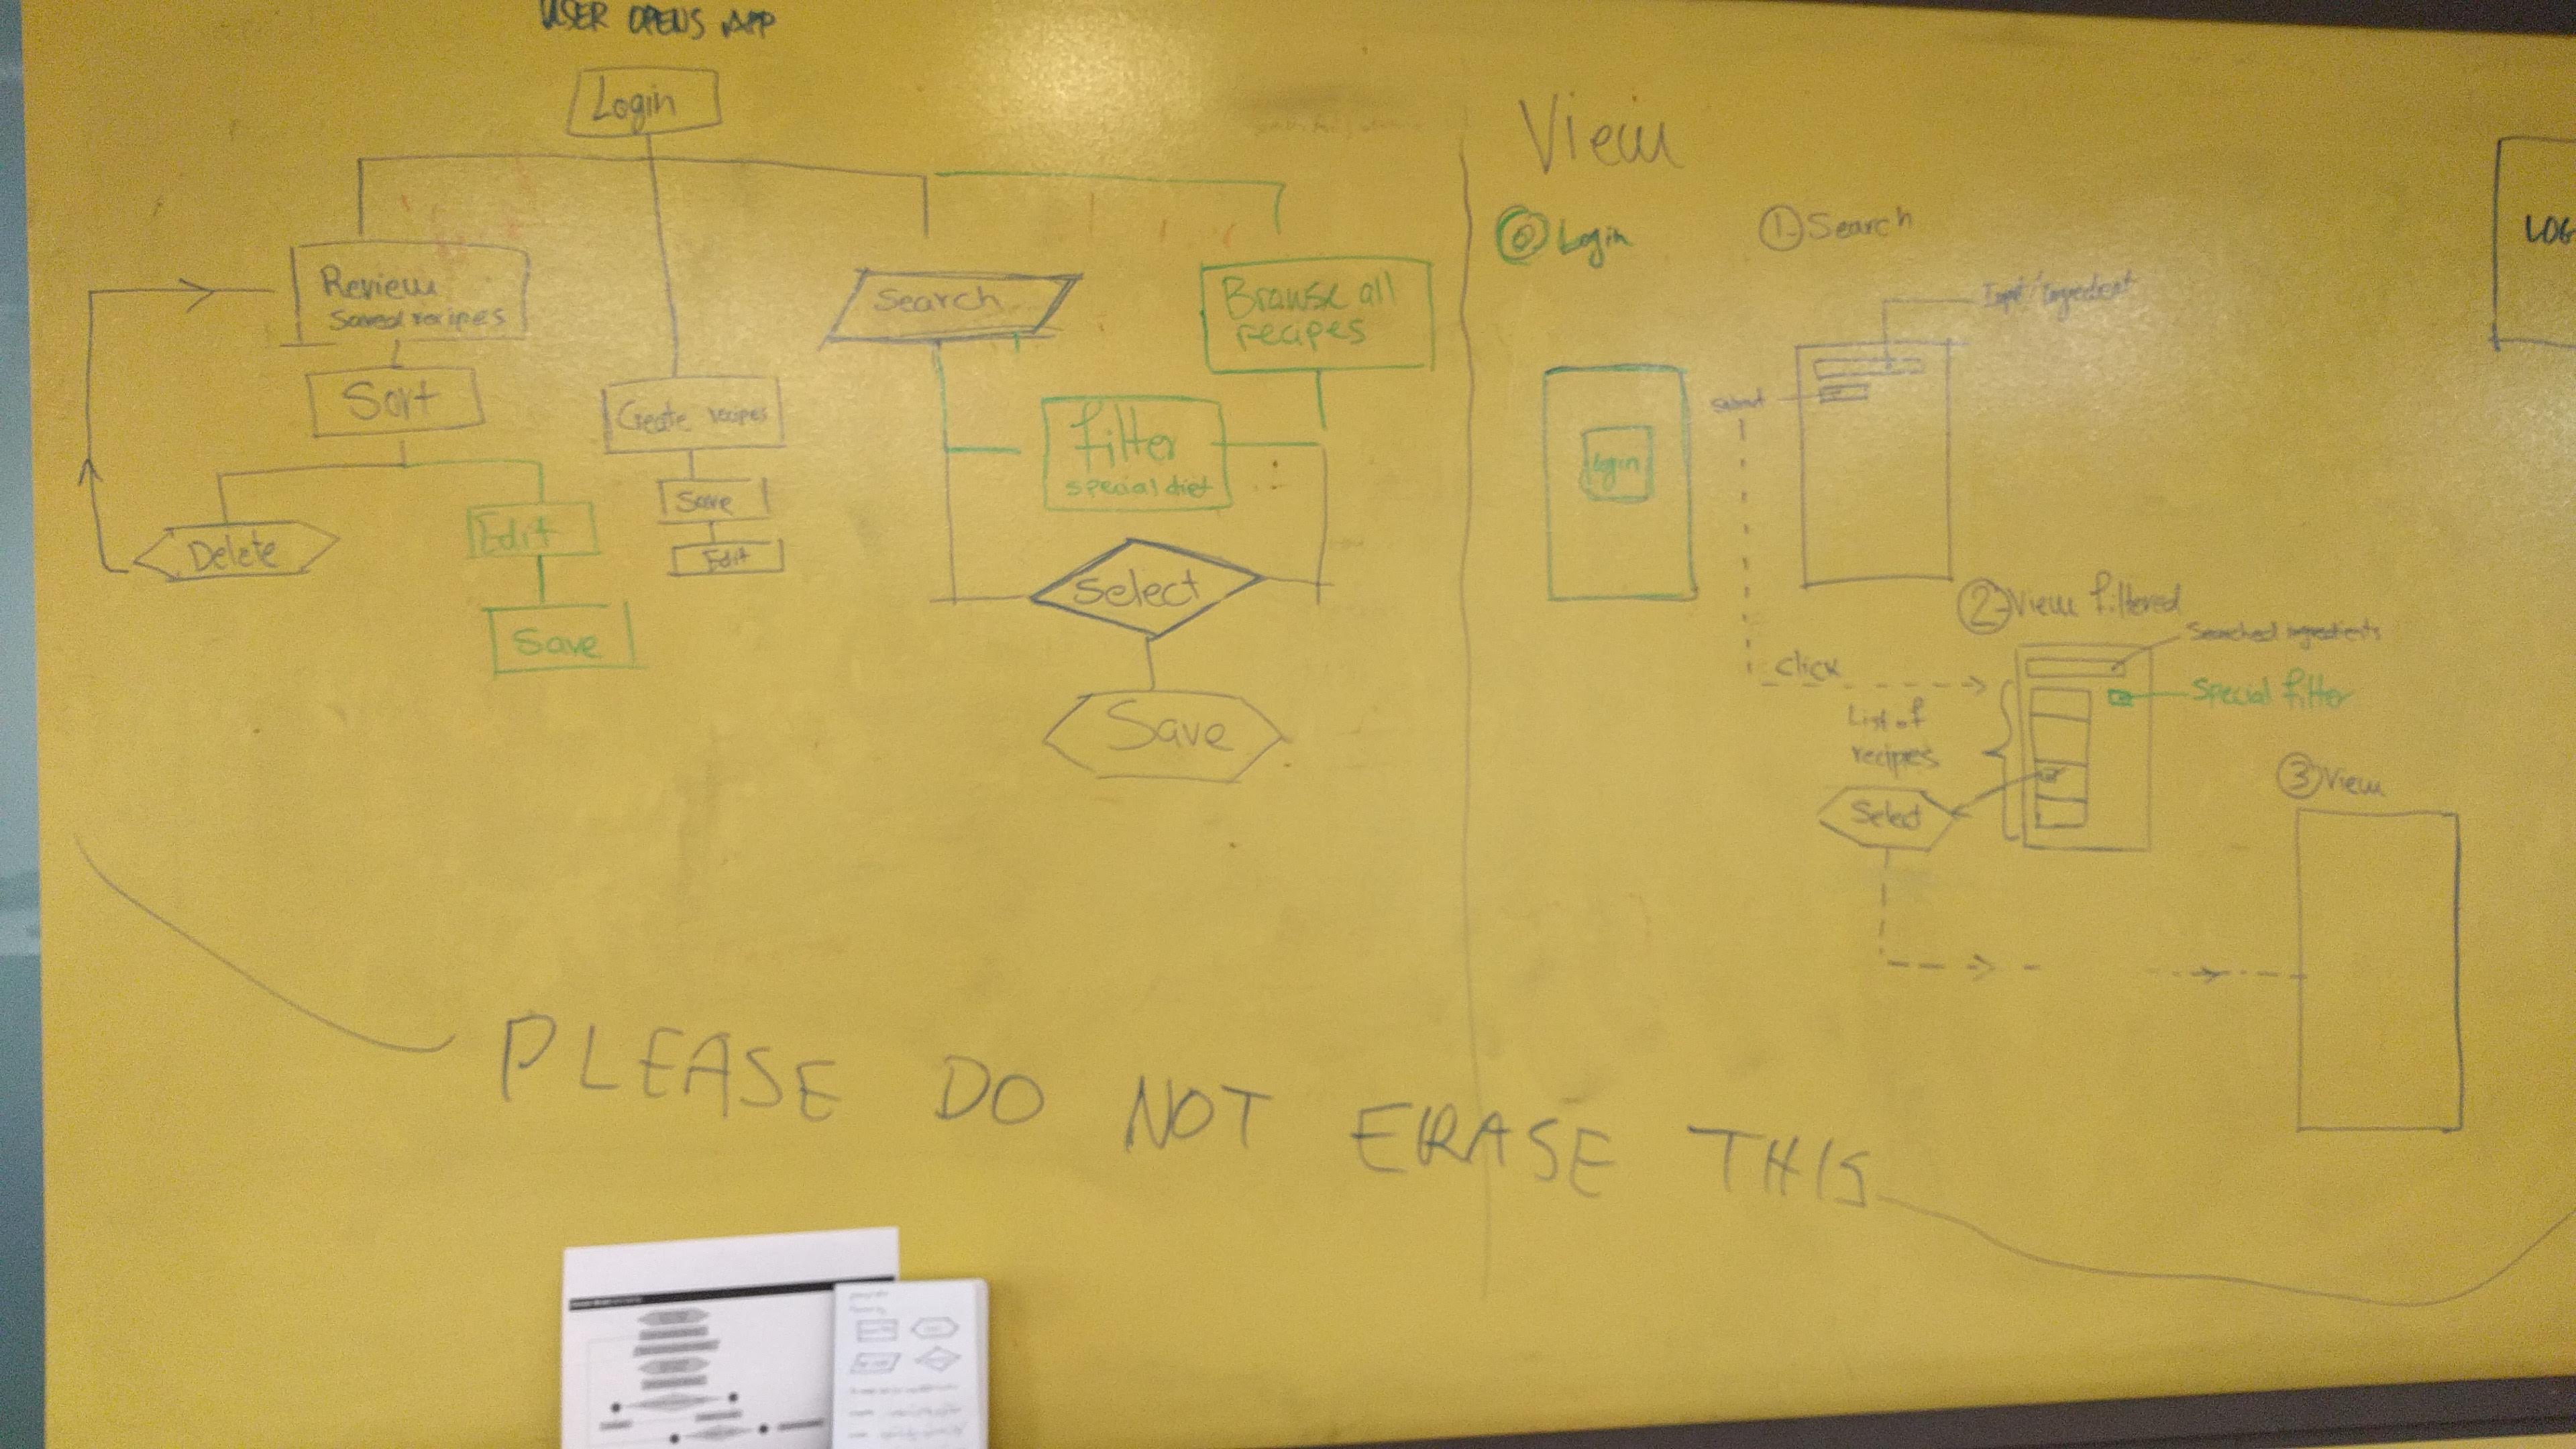 USER OPENS APP
Login
Review
Saved recipes
Sort
Delete
Edit
Save
Create recipes
Save
Edit
Search
Browse all
recipes
Filter
special diet
Select
Save
View
0 Login
Login
1 Search
Input ingredient
Submit
Click
2 View filtered
Searched ingredients
Special filter
List of
recipes
Select
3 View
LOG
PLEASE DO NOT ERASE THIS